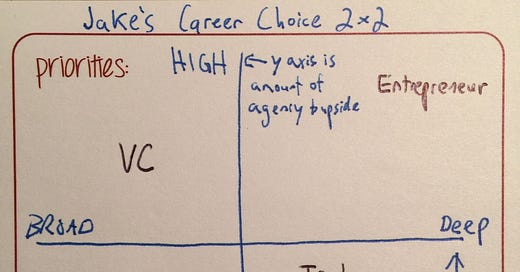 Jake's Career Choice 2x2
priorities:
HIGH
← y axis is
amount of
agency & upside
Entrepreneur
VC
BROAD
Deep
↑